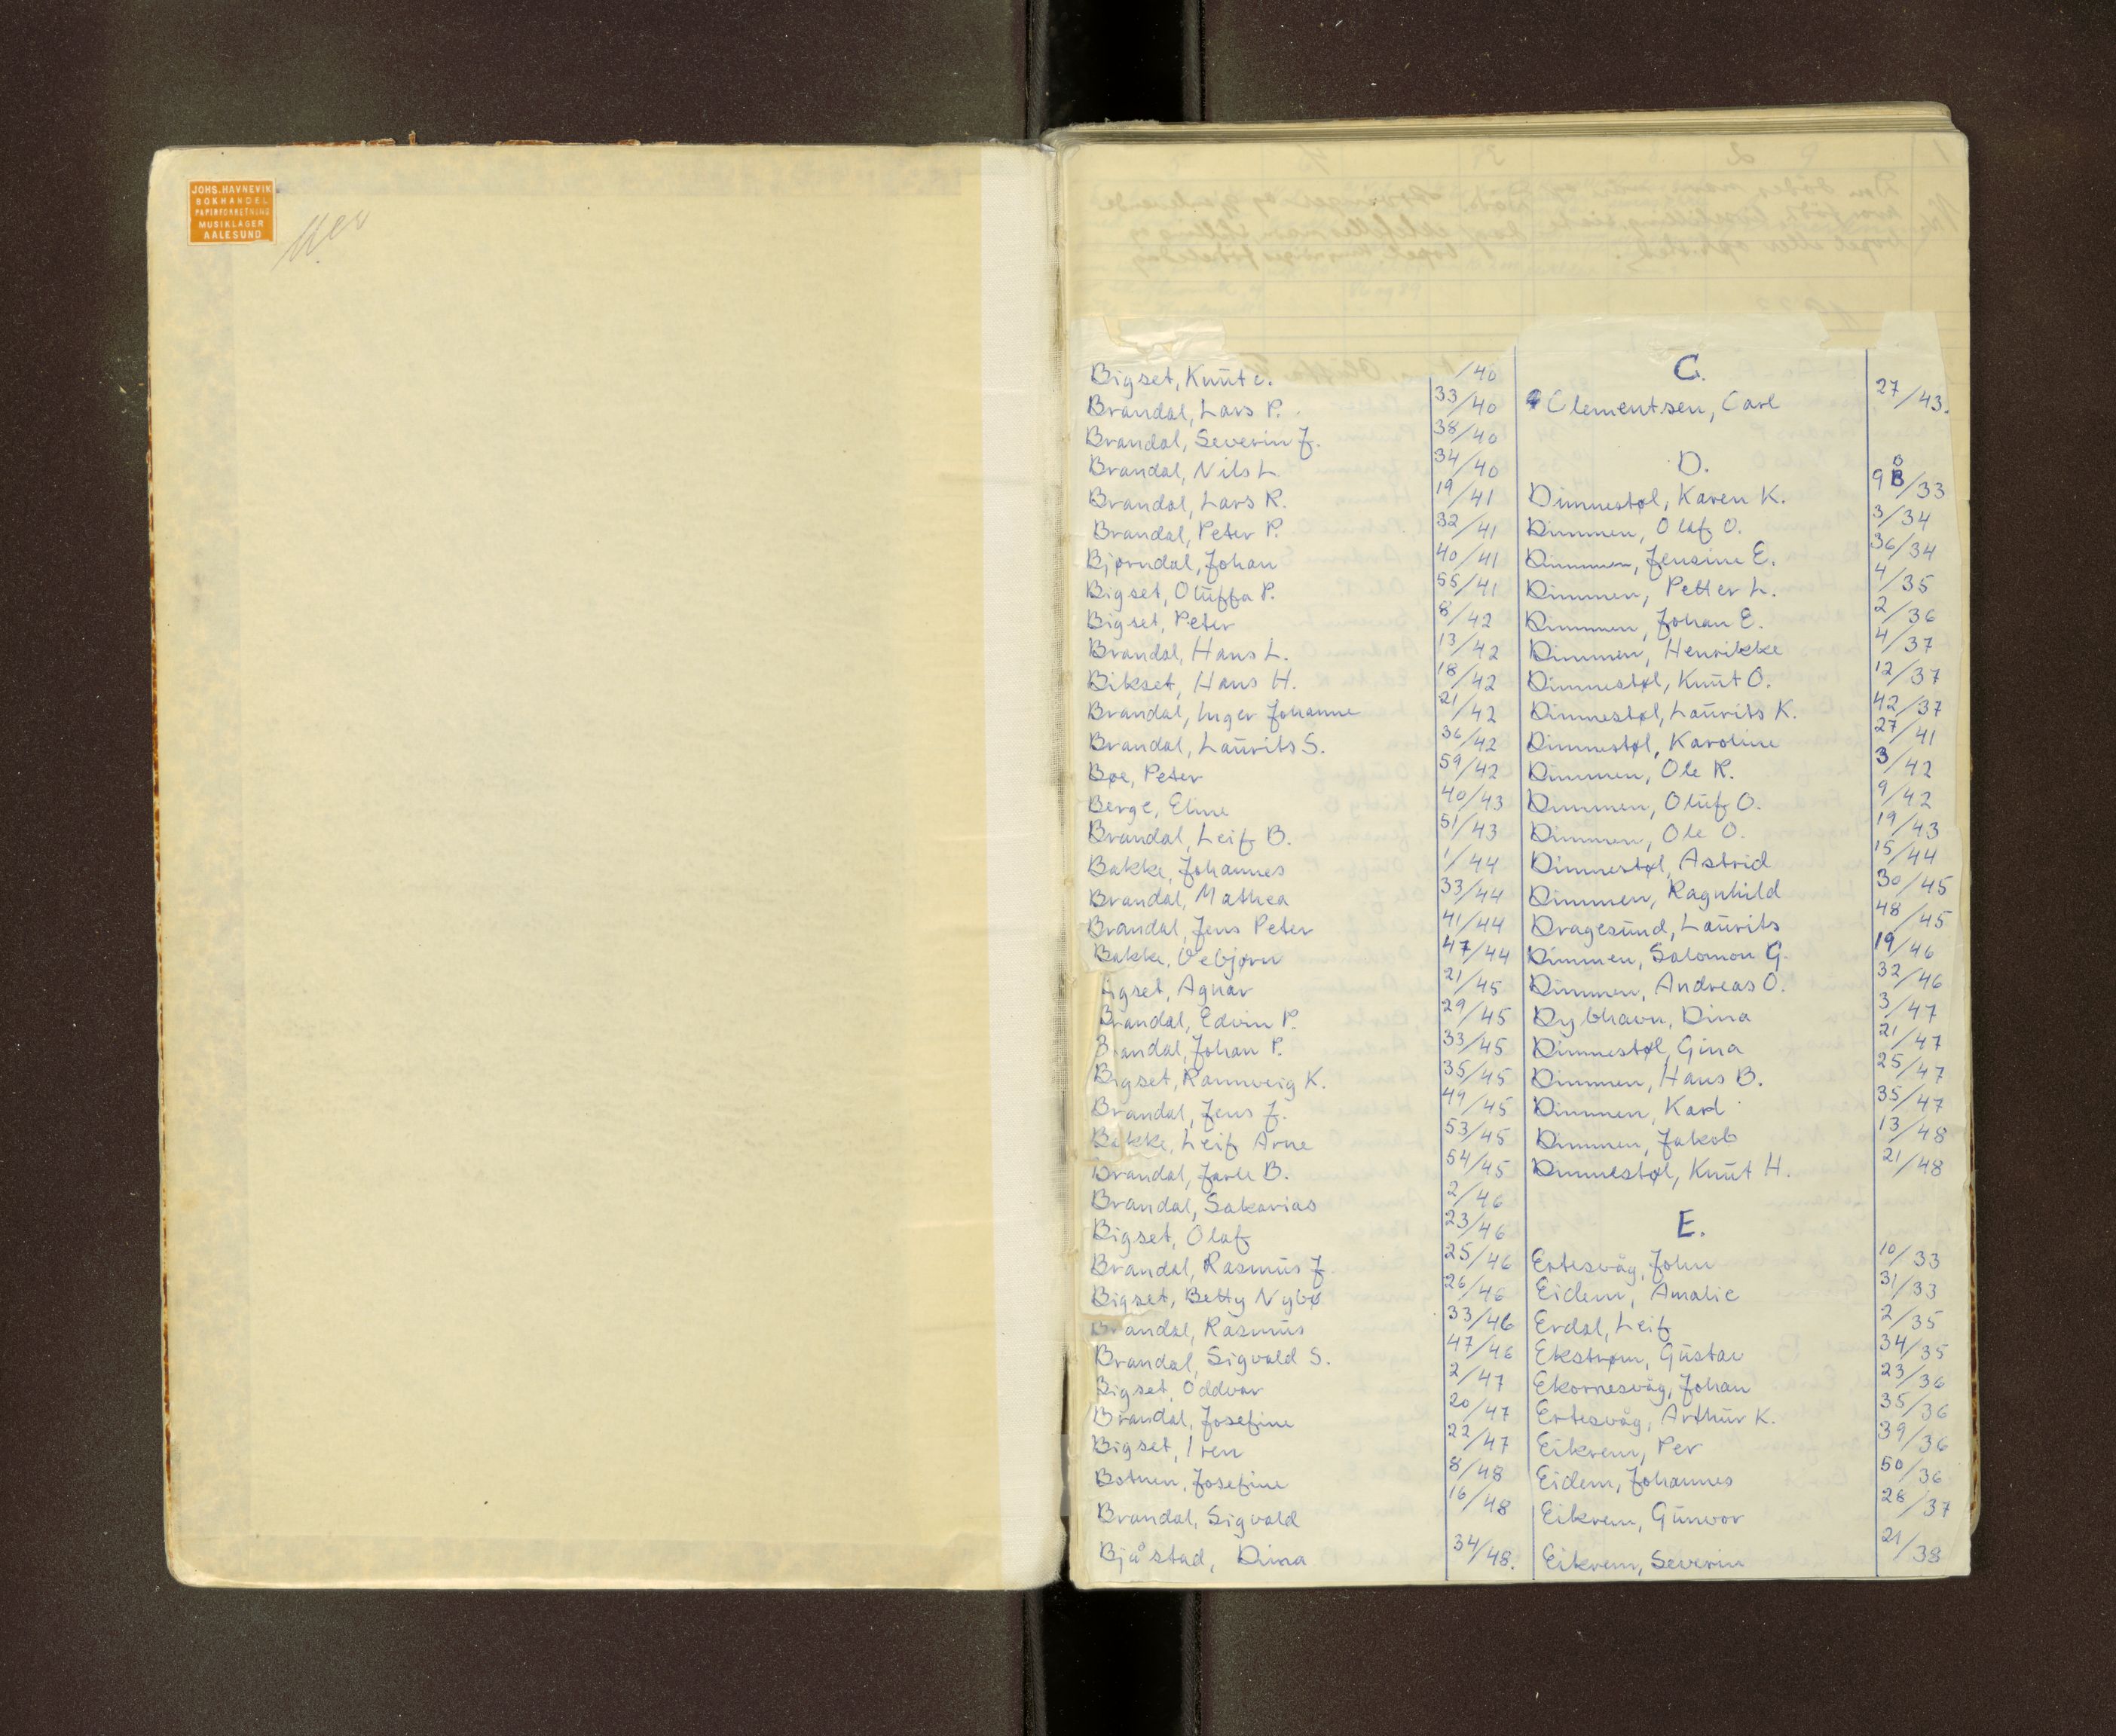 JOHS. HAVNEVIK
BOKHANDEL
PAPIRFORRETNING
MUSIKLAGER
AALESUND
Bigset, Knut /40
Brandal, Lars P. 33/40
Brandal, Severin J. 38/40
Brandal, Nils L 34/40
Brandal, Lars R. 19/41
Brandal, Peter P. 32/41
Bjørndal, Johan 40/41
Bigset, Oluffa P. 55/41
Bigset, Peter 8/42
Brandal, Hans L. 13/42
Bikset, Hans H. 18/42
Brandal, Inger Johanne 21/42
Brandal, Laurits S. 36/42
Bøe, Peter 59/42
Berge, Eline 40/43
Brandal, Leif B. 51/43
Bakke, Johannes 1/44
Brandal, Mathea 33/44
Brandal, Jens Peter 41/44
Bakke, Vebjørn 47/44
igset, Agnar 21/45
Brandal, Edvin P. 29/45
Brandal, Johan P. 33/45
Bigset, Rannveig K. 35/45
Brandal, Jens J. 49/45
Bakke, Leif Arne 53/45
Brandal, Jarle B. 54/45
Brandal, Sakarias 2/46
Bigset, Olaf 23/46
Brandal, Rasmus J 25/46
Bigset, Betty Nybø 26/46
Brandal, Rasmus 33/46
Brandal, Sigvald S. 47/46
Bigset, Oddvar 2/47
Brandal, Josefine 20/47
Bigset, Iren 22/47
Botnen, Josefine 8/48
Brandal, Sigvald 16/48
Bjåstad, Dina 34/48.
C.
Clementsen, Carl 27/43.
D.
Dimmestøl, Karen K. 9 B/33
Dimmen, Olaf O. 3/34
Dimmen, Jensine E. 36/34
Dimmen, Petter L. 4/35
Dimmen, Johan E. 2/36
Dimmen, Henrikke 4/37
Dimmestøl, Knut O. 12/37
Dimmestøl, Laurits K. 42/37
Dimmestøl, Karoline 27/41
Dimmen, Ole R. 3/42
Dimmen, Oluf O. 9/42
Dimmen, Ole O. 19/43
Dimmestøl, Astrid 15/44
Dimmen, Ragnhild 30/45
Dragesund, Laurits 48/45
Dimmen, Salomon G. 19/46
Dimmen, Andreas O. 32/46
Dybhavn, Dina 3/47
Dimmestøl, Gina 21/47
Dimmen, Hans B. 25/47
Dimmen, Karl 35/47
Dimmen, Jakob 13/48
Dimmestøl, Knut H. 21/48
E.
Ertesvåg, John 10/33
Eidem, Amalie 31/33
Erdal, Leif 2/35
Ekstrøm, Gustav 34/35
Ekornesvåg, Johan 23/36
Ertesvåg, Arthur K. 35/36
Eikrem, Per 39/36
Eidem, Johannes 50/36
Eikrem, Gunvor 28/37
Eikrem, Severin 21/38